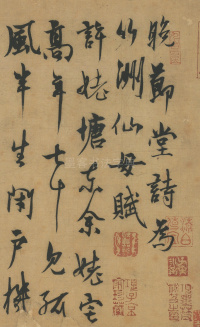 晚節堂詩為
竹洲仙母賦
許姥塘東余姥宅
高年七十見孤
風半生閉戶機